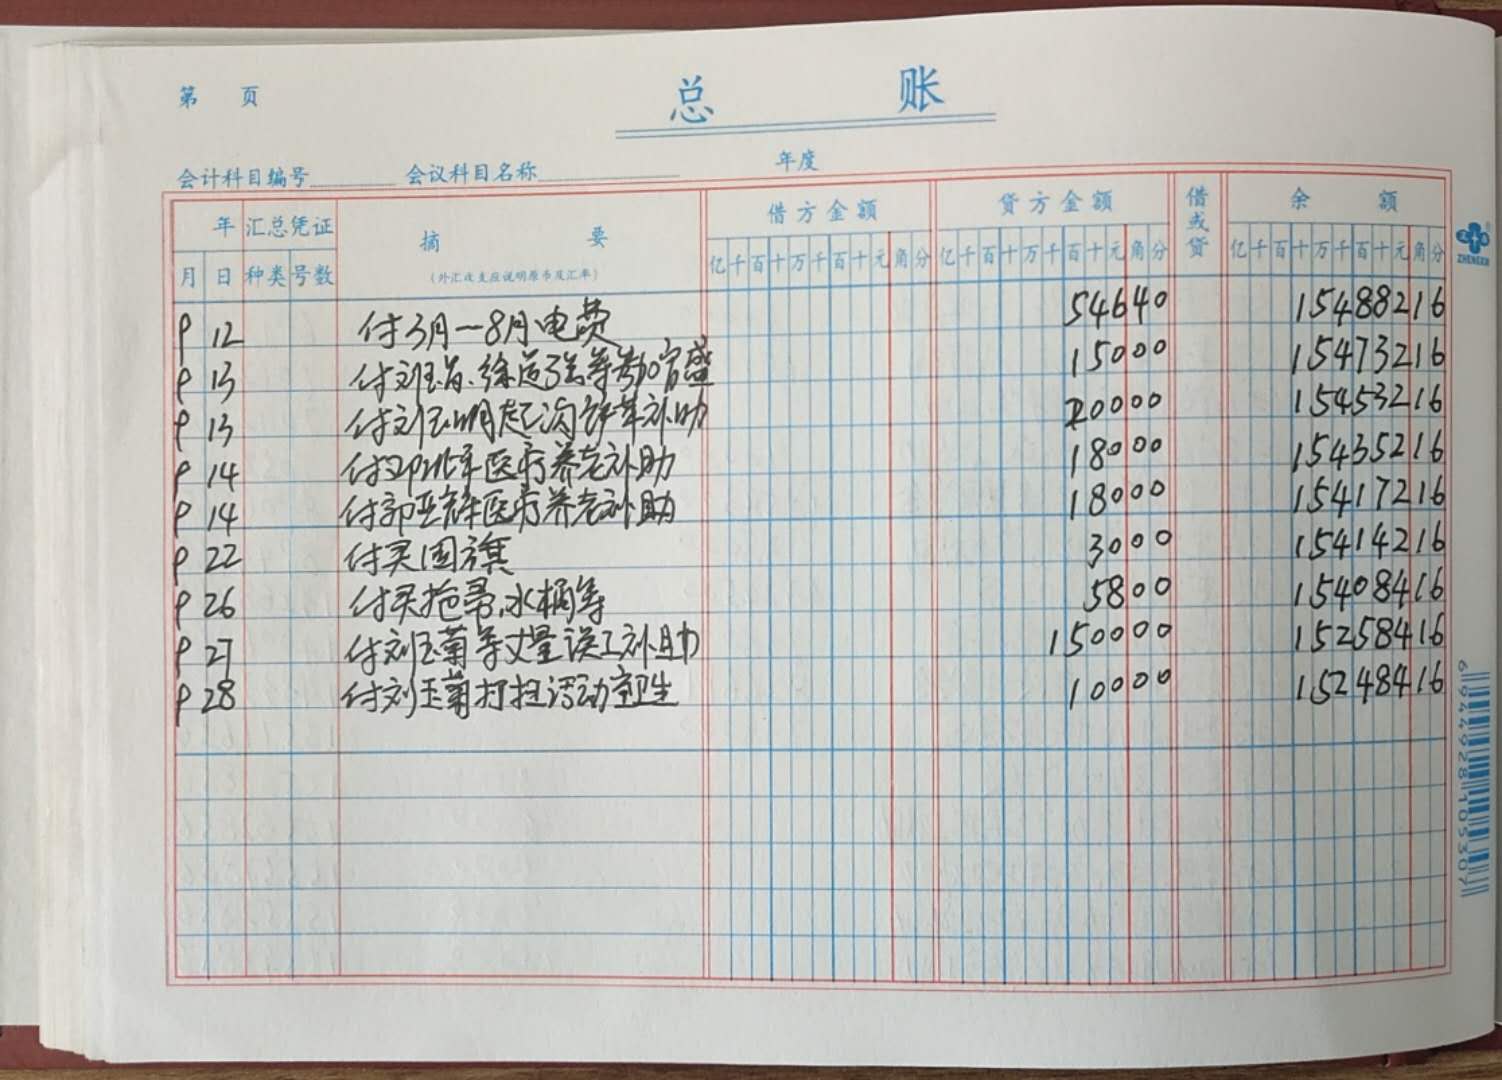 第 页
总 账
会计科目编号 会议科目名称 年度
年 汇总凭证 摘 要 借方金额 贷方金额 借或贷 余 额
月 日 种类 号数 (外汇收支应说明原币及汇率) 亿千百十万千百十元角分 亿千百十万千百十元角分 亿千百十万千百十元角分
9 12 付3月一8月电费 54640 15488216
9 13 付刘 15000 15473216
9 13 付刘玉明 补助 20000 15453216
9 14 付 医疗养老补助 18000 15435216
9 14 付郭亚辉医疗养老补助 18000 15417216
9 22 付买国旗 3000 15414216
9 26 付买拖帚,水桶等 5800 15408416
9 27 付刘玉菊等丈量误工补助 150000 15258416
9 28 付刘玉菊打扫活动室卫生 10000 15248416
ZHENGXIN
6944928105307